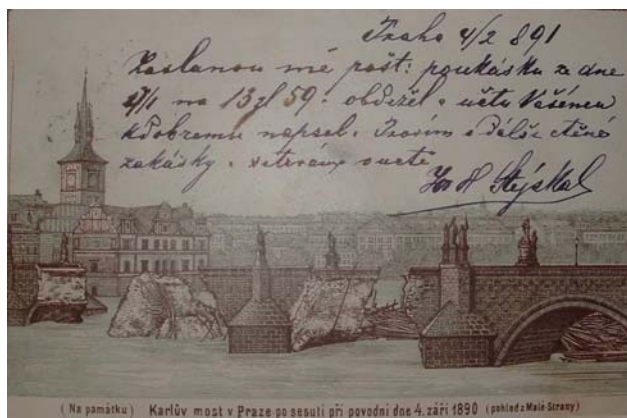 Praha 4/2 891
Zaslanou mě pošt: poukásku ze dne
na 13 zl 59. obdržel a účtu Vašemu
kdobremu napsal. Prosím o dálšé ctěné
zakásky. v úctě
Jos Stýskal
(Na památku) Karlův most v Praze po sesutí při povodni dne 4. září 1890 (pohled z Malé Strany)